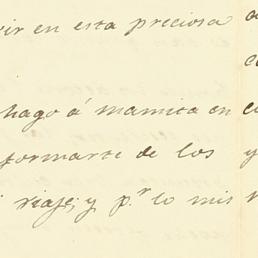 vir en esta preciosa
hago á mamita en
formarte de los
viaje; y p.r lo mis